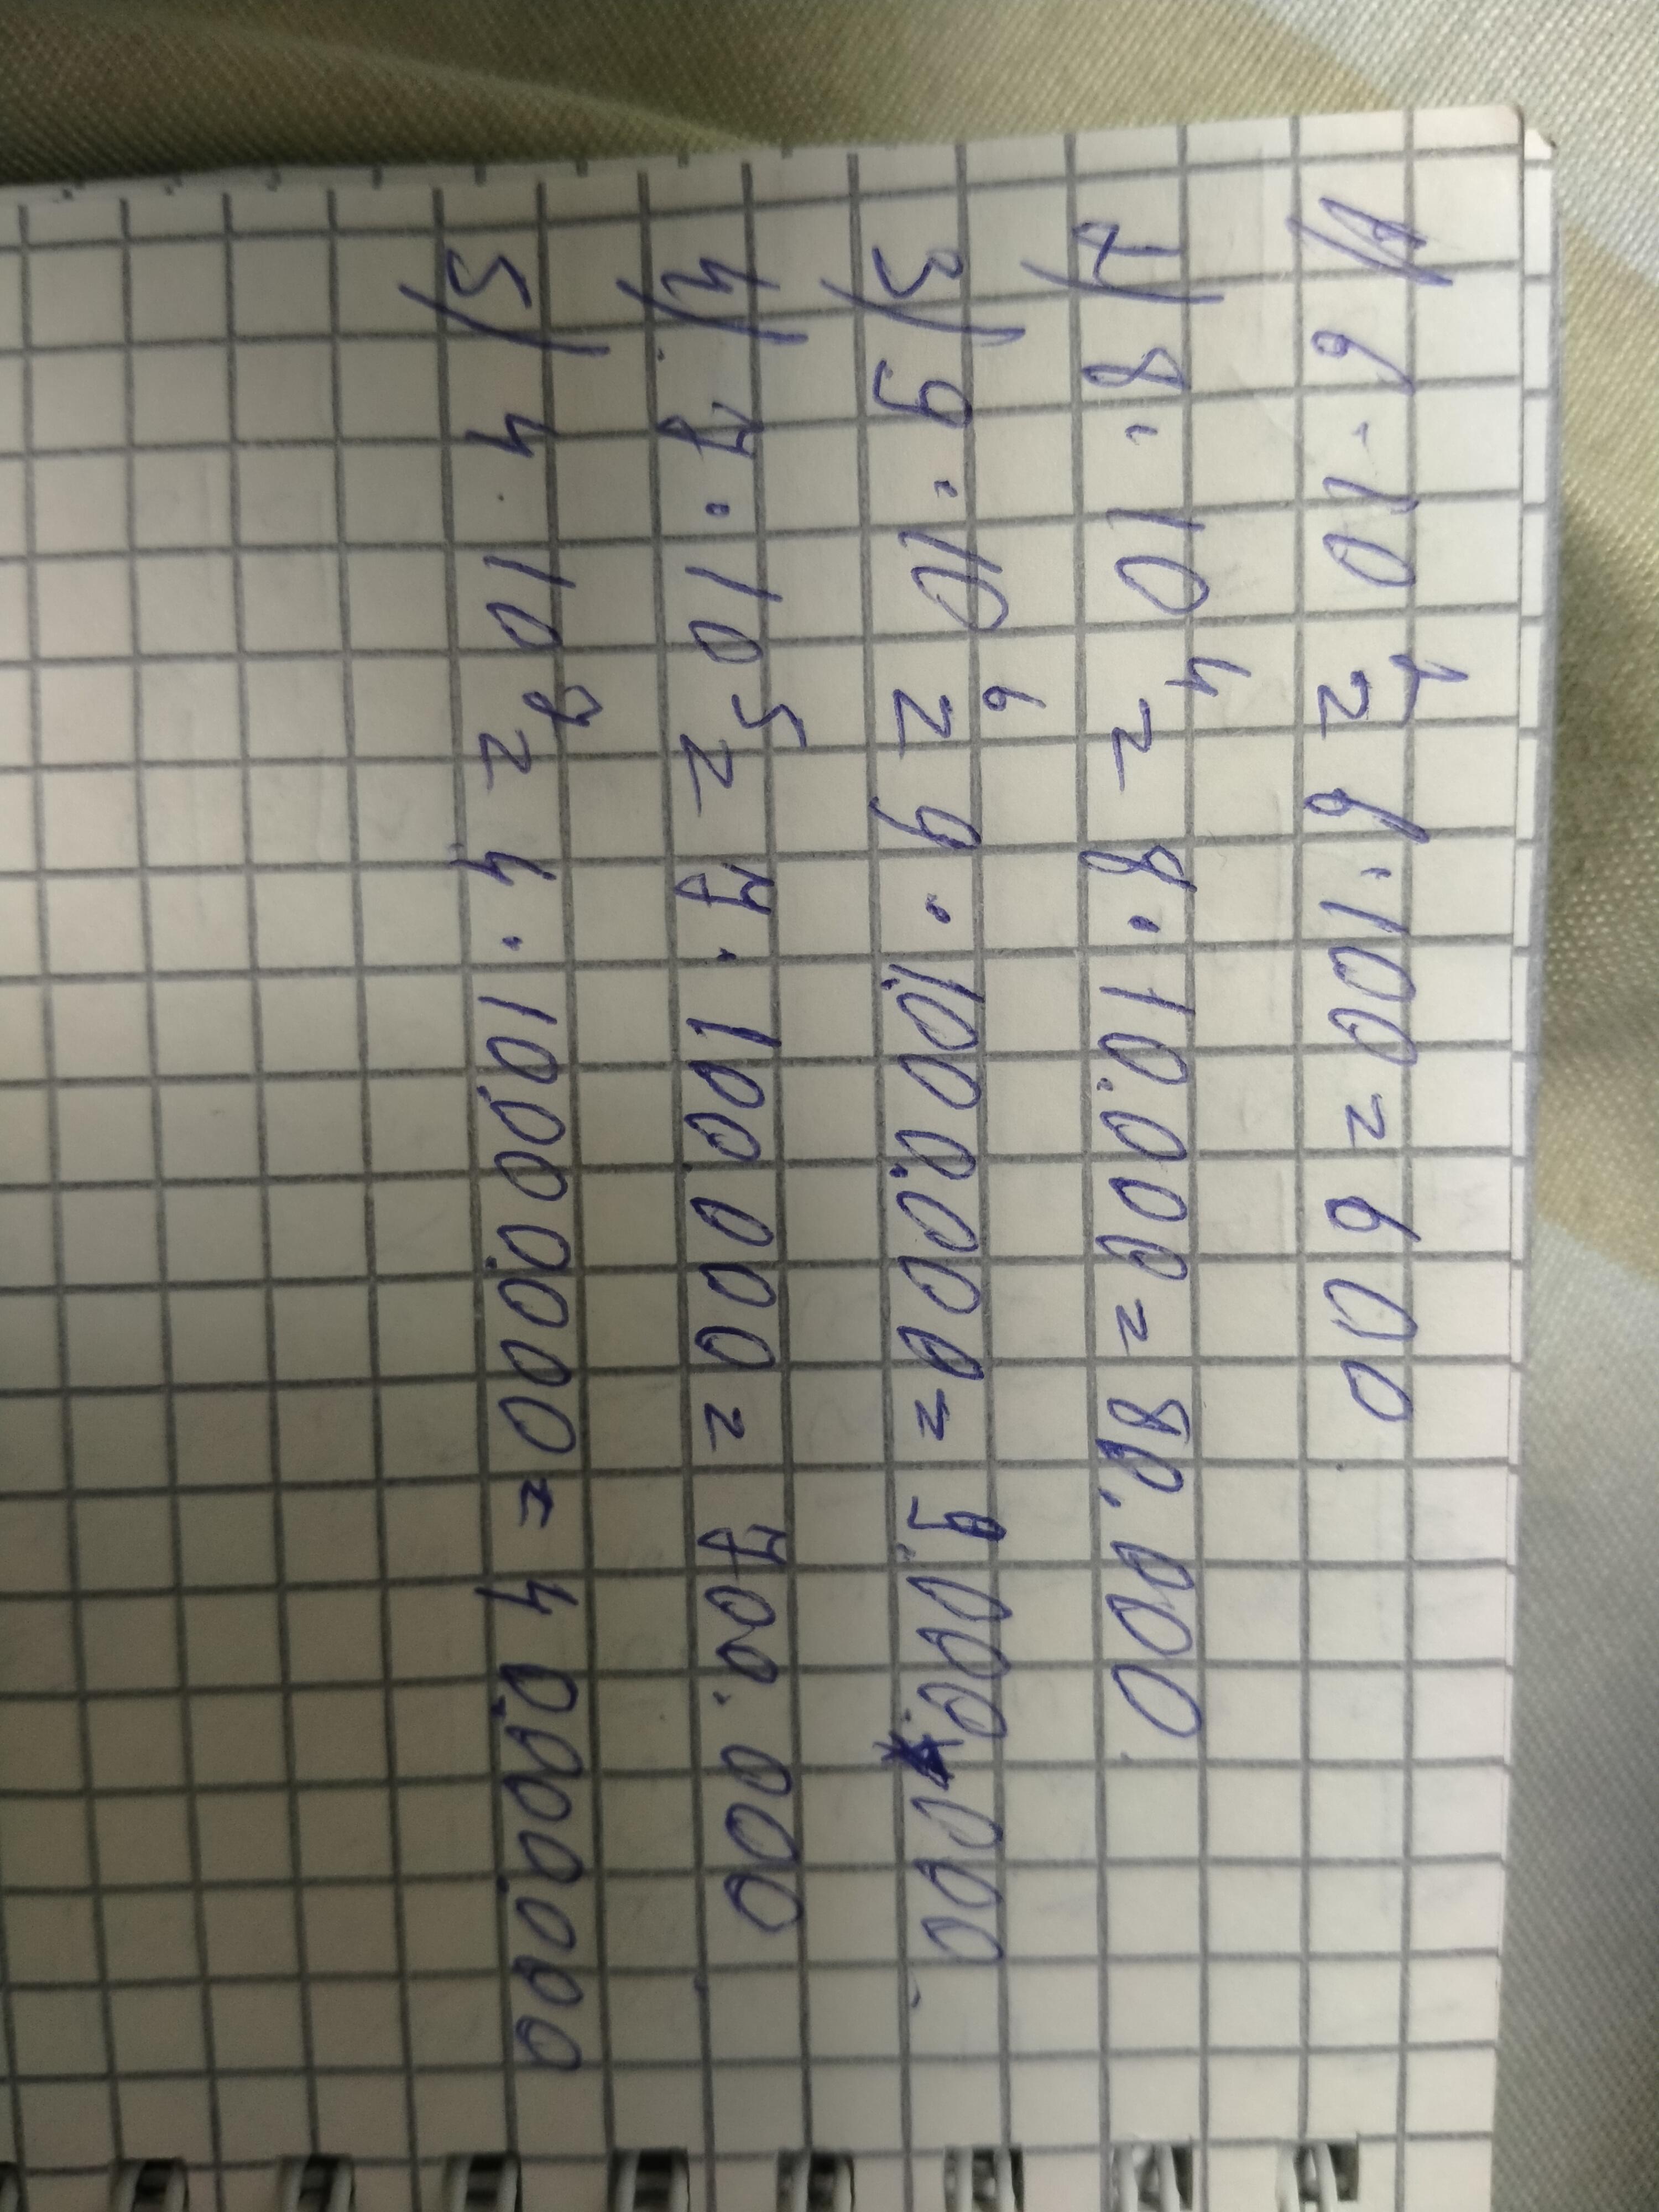 1) 6 · 10² = 6 · 100 = 600
2) 8 · 10⁴ = 8 · 10.000 = 80.000
3) 9 · 10⁶ = 9 · 1.000.000 = 9.000.000
4) 7 · 10⁵ = 7 · 100.000 = 700.000
5) 4 · 10⁷ = 4 · 10.000.000 = 40.000.000